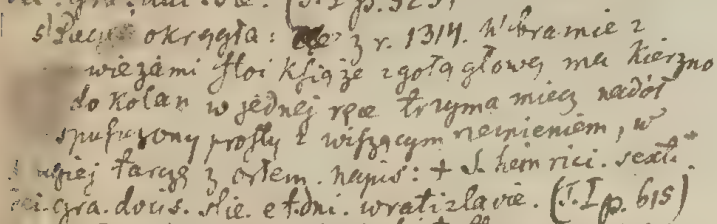 gra. (T. I p. 525)
s) okrągła: z r. 1314. W bramie z
wieżami stoi książe z gołą głową ma kierzno
do kolan w jednej ręce trzyma miecz nadół
spuszczony prosty z wiszącym rzemieniem, w
drugiej tarczę z orłem. napis: + S. heinrici. sexti.
dei. gra. dvcis. slie. et dni. wratizlavie. (T. I p. 615)